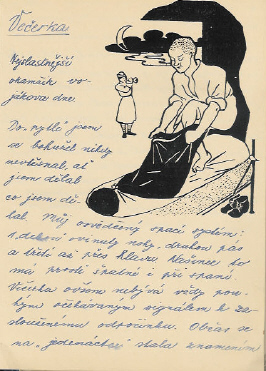 Večerka
Nejšťastnější
okamžik vo-
jákova dne.
Do pytle jsem
se bohužel nikdy
nevtěsnal, ať
jsem dělal
co jsem dě-
lal. Můj osvědčený spací systém:
1 dekou ovinuty nohy, druhou pás
a třetí až přes hlavu. Nakonec to
má prostě špatné i při spaní
Večerka ovšem nebývá vždy pou-
hým očekávaným signálem k za-
slouženému odpočinku. Občas se
na "jedenáctce" stala znamením